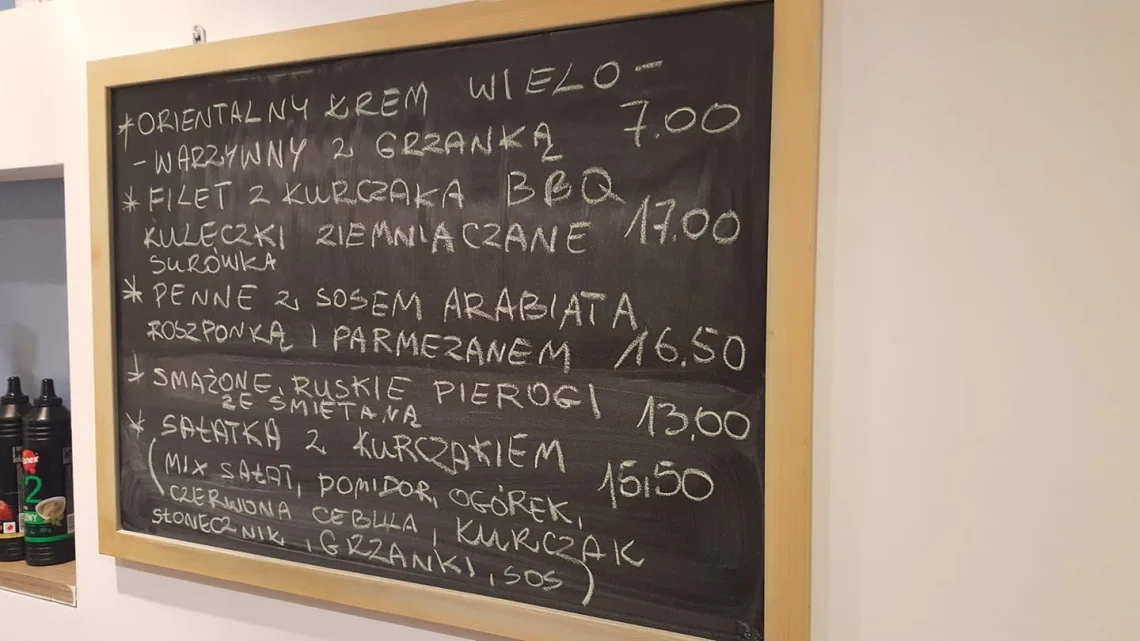 * ORIENTALNY KREM WIELO-
- WARZYWNY Z GRZANKĄ 7.00
* FILET Z KURCZAKA BBQ
KULECZKI ZIEMNIACZANE 17.00
SURÓWKA
* PENNE Z SOSEM ARABIATA
ROSZPONKĄ I PARMEZANEM 16.50
* SMAŻONE RUSKIE PIEROGI
ZE ŚMIETANĄ 13,00
* SAŁATKA Z KURCZAKIEM
(MIX SAŁAT, POMIDOR, OGÓREK, 15,50
CZERWONA CEBULA, KURCZAK
SŁONECZNIK, GRZANKI, SOS)
2